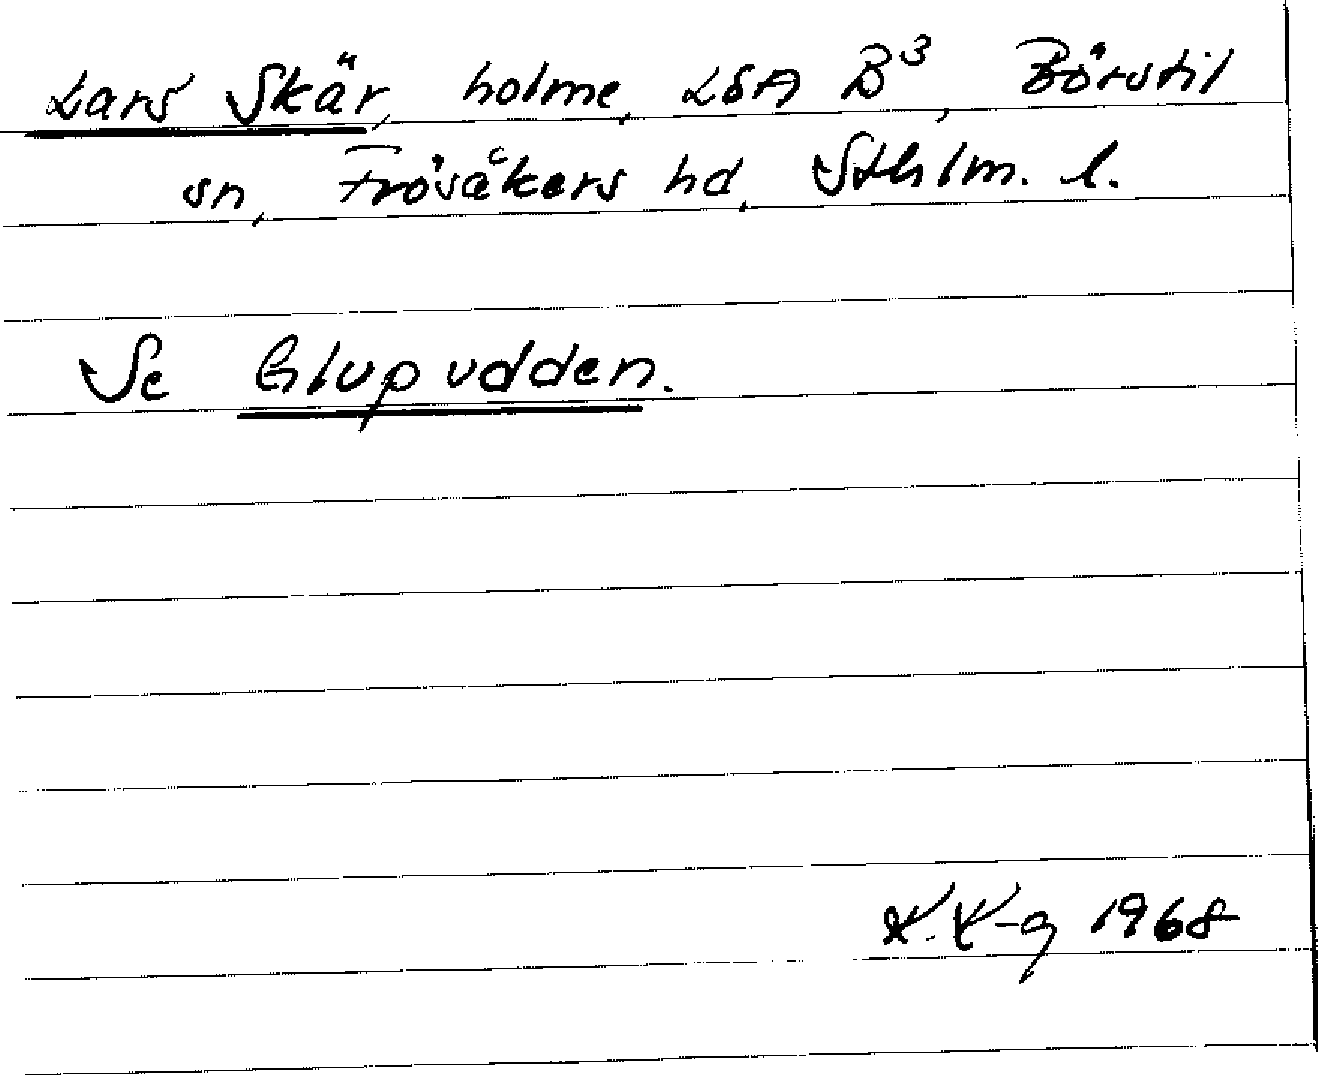 Lars Skär, holme, LSA B³, Börstil
sn, Frösåkers hd, Sthlm. l.
Se Glupudden.
K. K-g 1968